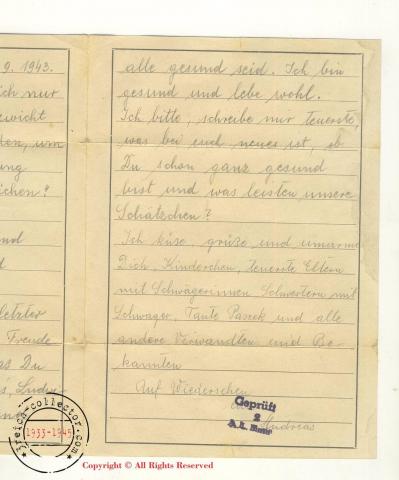 9. 1943.
ich nur
ewicht
ten, um
ung
ichen?
und
d
letzter
Freude
as Du
s, Ludw-
alle gesund seid. Ich bin
gesund und lebe wohl.
Ich bitte, schreibe nur teuerste,
was bei euch neues ist, ob
Du schon ganz gesund
bist und was leisten unsere
Schätzchen?
Ich küse, grüze und umarme
Dich, Kinderchen, teuerste Eltern
mit Schwägerinnen Schwestern mit
Schwager, Tante Pasrek und alle
andere Verwandten und Be-
kannten
Auf Wiedersehen
Andreas
Geprüft
2
3reich-collector.com
1933-1945
Copyright © All Rights Reserved